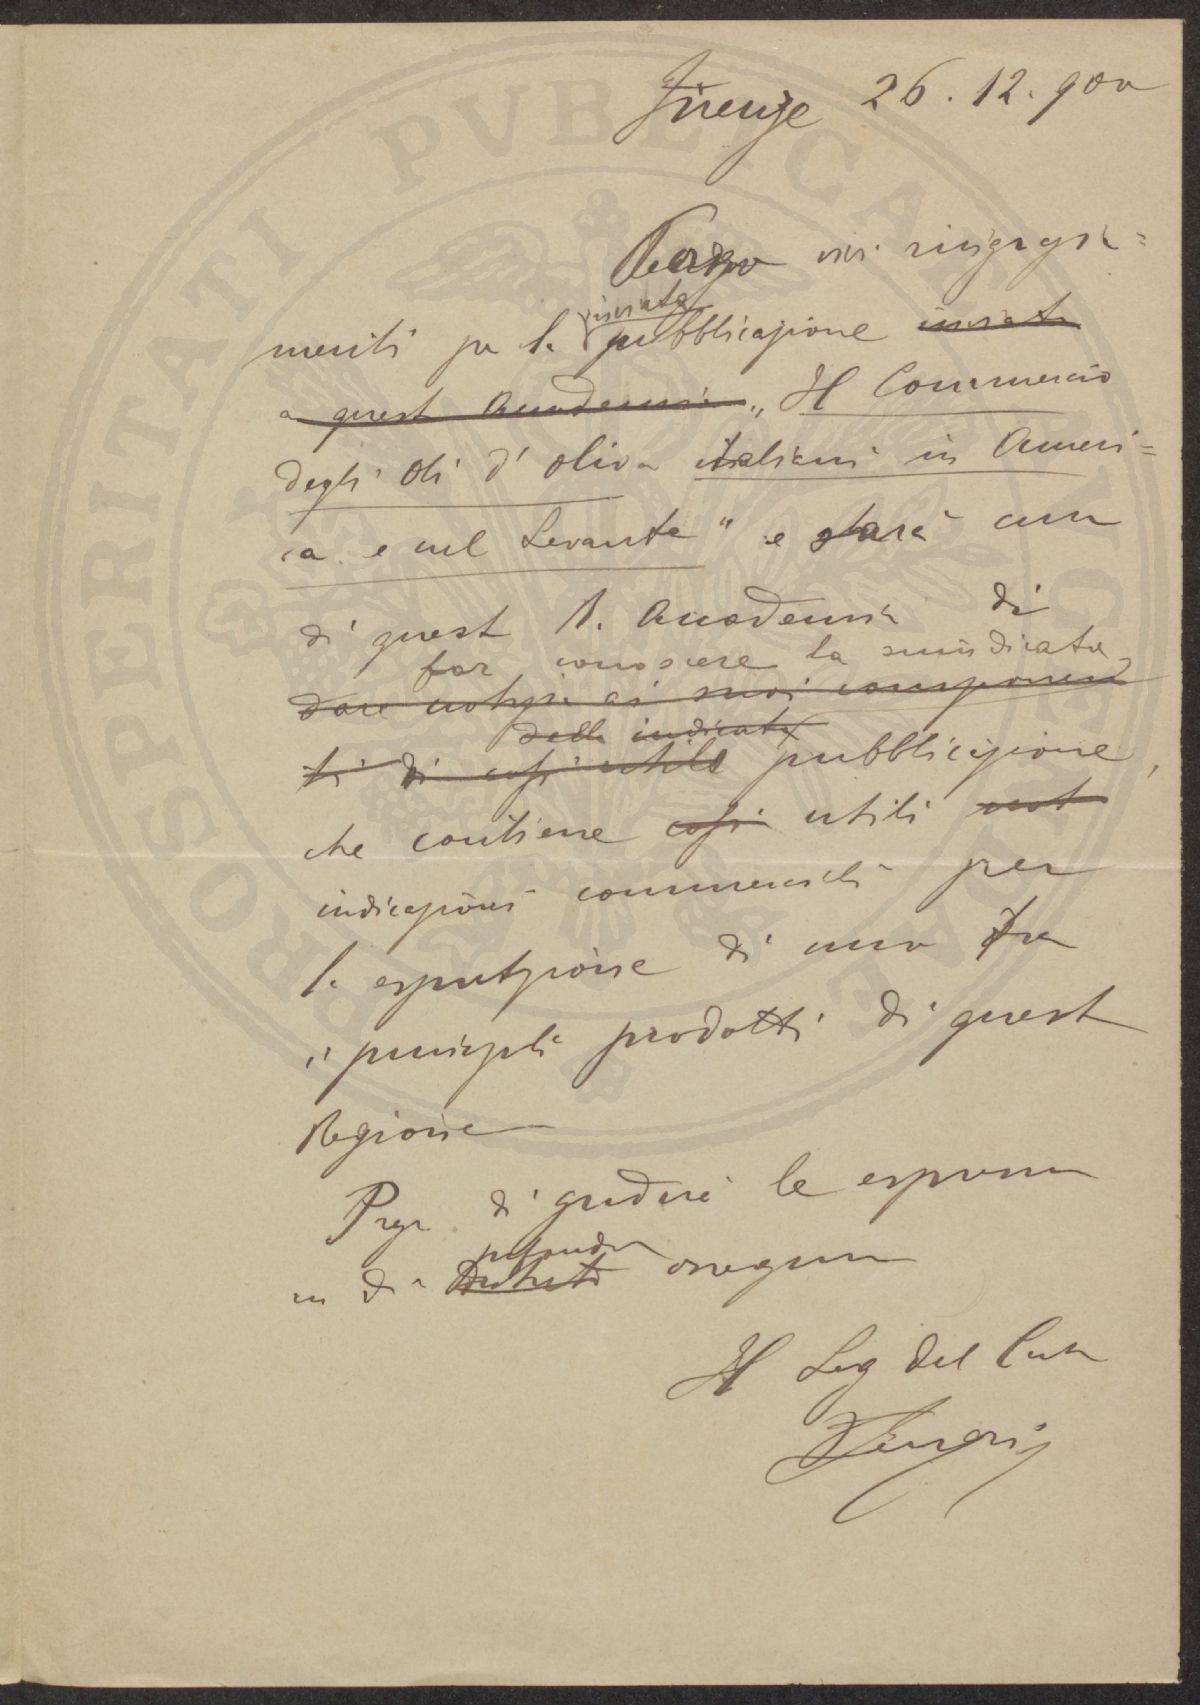 Firenze 26. 12. 900
Porgo vivi ringrazia=
menti per la inviata pubblicazione inviata
a questa Accademia „Il Commercio
degli oli d'oliva italiani in Ameri=
ca e nel Levante" e sarà cura
di questa R. Accademia di
far conoscere la suindicata
dare notizia ai suoi componen
della indicata
ti di così utile pubblicazione,
che contiene così utili not
indicazioni commerciali per
la esportazione di uno fra
i principali prodotti di questa
Regione
Prego di gradire le espressio
ni di profondo ossequio
Il Seg del